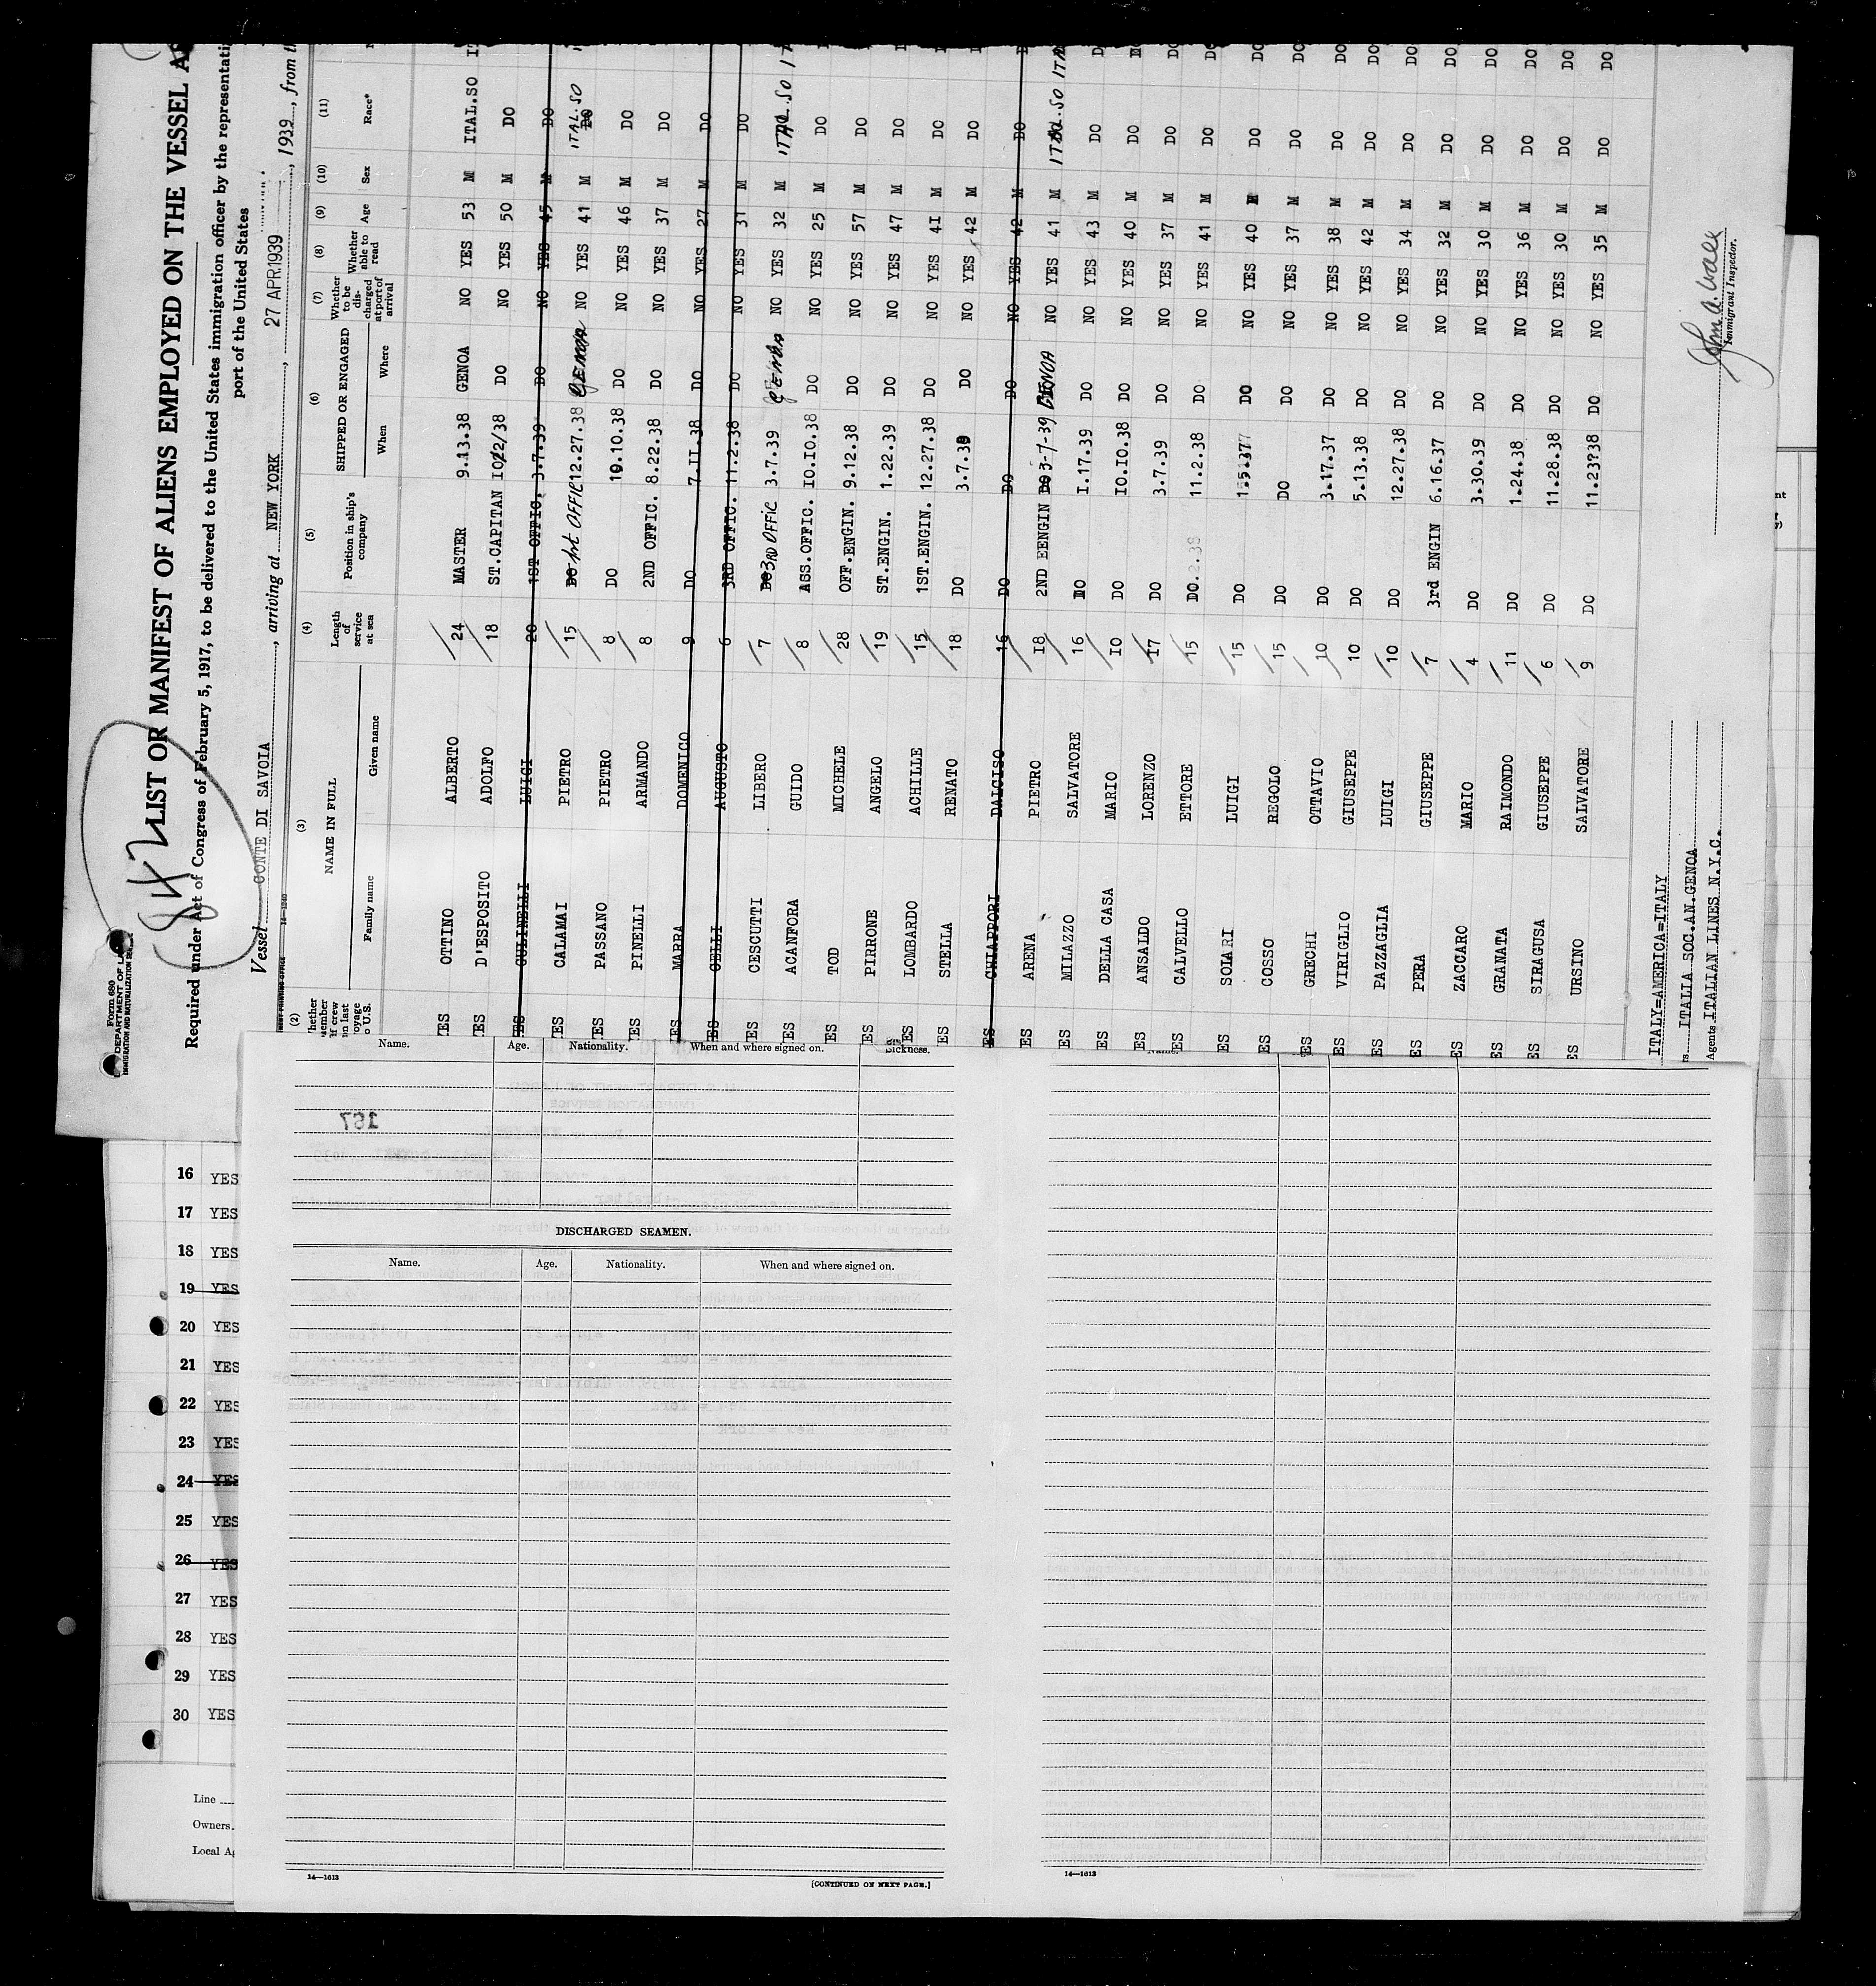 Form 680
DEPARTMENT OF LA
IMMIGRATION AND NATURALIZATION SE
842
LIST OR MANIFEST OF ALIENS EMPLOYED ON THE VESSEL AS
Required under Act of Congress of February 5, 1917, to be delivered to the United States immigration officer by the representati
port of the United States
Vessel CONTE DI SAVOIA, arriving at NEW YORK, 27 APR 1939, 1939, from th
(2) (3) (4) (5) (6) (7) (8) (9) (10) (11)
NAME IN FULL Length of service at sea Position in ship's company SHIPPED OR ENGAGED Whether to be discharged at port of arrival Whether able to read Age Sex Race*
Family name Given name When Where
YES OTTINO ALBERTO 24 MASTER 9.13.38 GENOA NO YES 53 M ITAL.SO IT
YES D'ESPOSITO ADOLFO 18 ST.CAPITAN 10/2/38 DO NO YES 50 M DO
YES GULINELLI LUIGI 20 1ST OFFIC. 3.7.39 DO NO YES 45 M DO
YES CALAMAI PIETRO 15 DO 1st OFFIC 12.27.38 Genoa NO YES 41 M ITAL.SO
YES PASSANO PIETRO 8 DO 10.10.38 DO NO YES 46 M DO
YES PINELLI ARMANDO 8 2ND OFFIC. 8.22.38 DO NO YES 37 M DO
ES MARRA DOMENICO 9 DO 7.II.38 DO NO YES 27 M DO
ES CELLI AUGUSTO 6 3RD OFFIC. 11.2.38 DO NO YES 31 M DO
ES CESCUTTI LIBERO 7 DO 3RD OFFIC 3.7.39 Genoa NO YES 32 M ITAL.SO IT
ES ACANFORA GUIDO 8 ASS.OFFIC. IO.IO.38 DO NO YES 25 M DO DO
ES TOD MICHELE 28 OFF.ENGIN. 9.12.38 DO NO YES 57 M DO DO
ES PIRRONE ANGELO 19 ST.ENGIN. 1.22.39 DO NO YES 47 M DO DO
ES LOMBARDO ACHILLE 15 1ST.ENGIN. 12.27.38 DO NO YES 4I M DO DO
ES STELLA RENATO 18 DO 3.7.39 DO NO YES 42 M DO DO
ES CHIAPPORI DALCISO 16 DO DO DO NO YES 42 M DO DO
ES ARENA PIETRO I8 2ND EENGIN DO 3-7-39 GENOA NO YES 41 M ITAL.SO ITA
ES MILAZZO SALVATORE 16 DO I.17.39 DO NO YES 43 M DO DO
ES DELLA CASA MARIO IO DO IO.IO.38 DO NO YES 40 M DO DO
ES ANSALDO LORENZO 17 DO 3.7.39 DO NO YES 37 M DO DO
ES CALVELLO ETTORE 15 DO 11.2.38 DO NO YES 41 M DO DO
ES SOLARI LUIGI 15 DO 1.5.37 DO NO YES 40 M DO DO
ES COSSO REGOLO 15 DO DO DO NO YES 37 M DO DO
ES GRECHI OTTAVIO 10 DO 3.17.37 DO NO YES 38 M DO DO
ES VIRIGLIO GIUSEPPE 10 DO 5.13.38 DO NO YES 42 M DO DO
ES PAZZAGLIA LUIGI 10 DO 12.27.38 DO NO YES 34 M DO DO
ES PERA GIUSEPPE 7 3rd ENGIN 6.16.37 DO NO YES 32 M DO DO
ES ZACCARO MARIO 4 DO 3.30.39 DO NO YES 30 M DO DO
ES GRANATA RAIMONDO 11 DO 1.24.38 DO NO YES 36 M DO DO
ES SIRAGUSA GIUSEPPE 6 DO 11.28.38 DO NO YES 30 M DO DO
ES URSINO SALVATORE 9 DO 11.23?38 DO NO YES 35 M DO DO
ITALY-AMERICA=ITALY
ITALIA SOC.AN.GENOA
Agents ITALIAN LINES N.Y.C.
Immigrant Inspector.
Name. Age. Nationality. When and where signed on. Sickness.
167
DISCHARGED SEAMEN.
Name. Age. Nationality. When and where signed on.
16 YES
17 YES
18 YES
19 YES
20 YES
21 YES
22 YES
23 YES
24 YES
25 YES
26 YES
27 YES
28 YES
29 YES
30 YES
Line
Owners
Local Ag
14—1613
[CONTINUED ON NEXT PAGE.]
14—1613